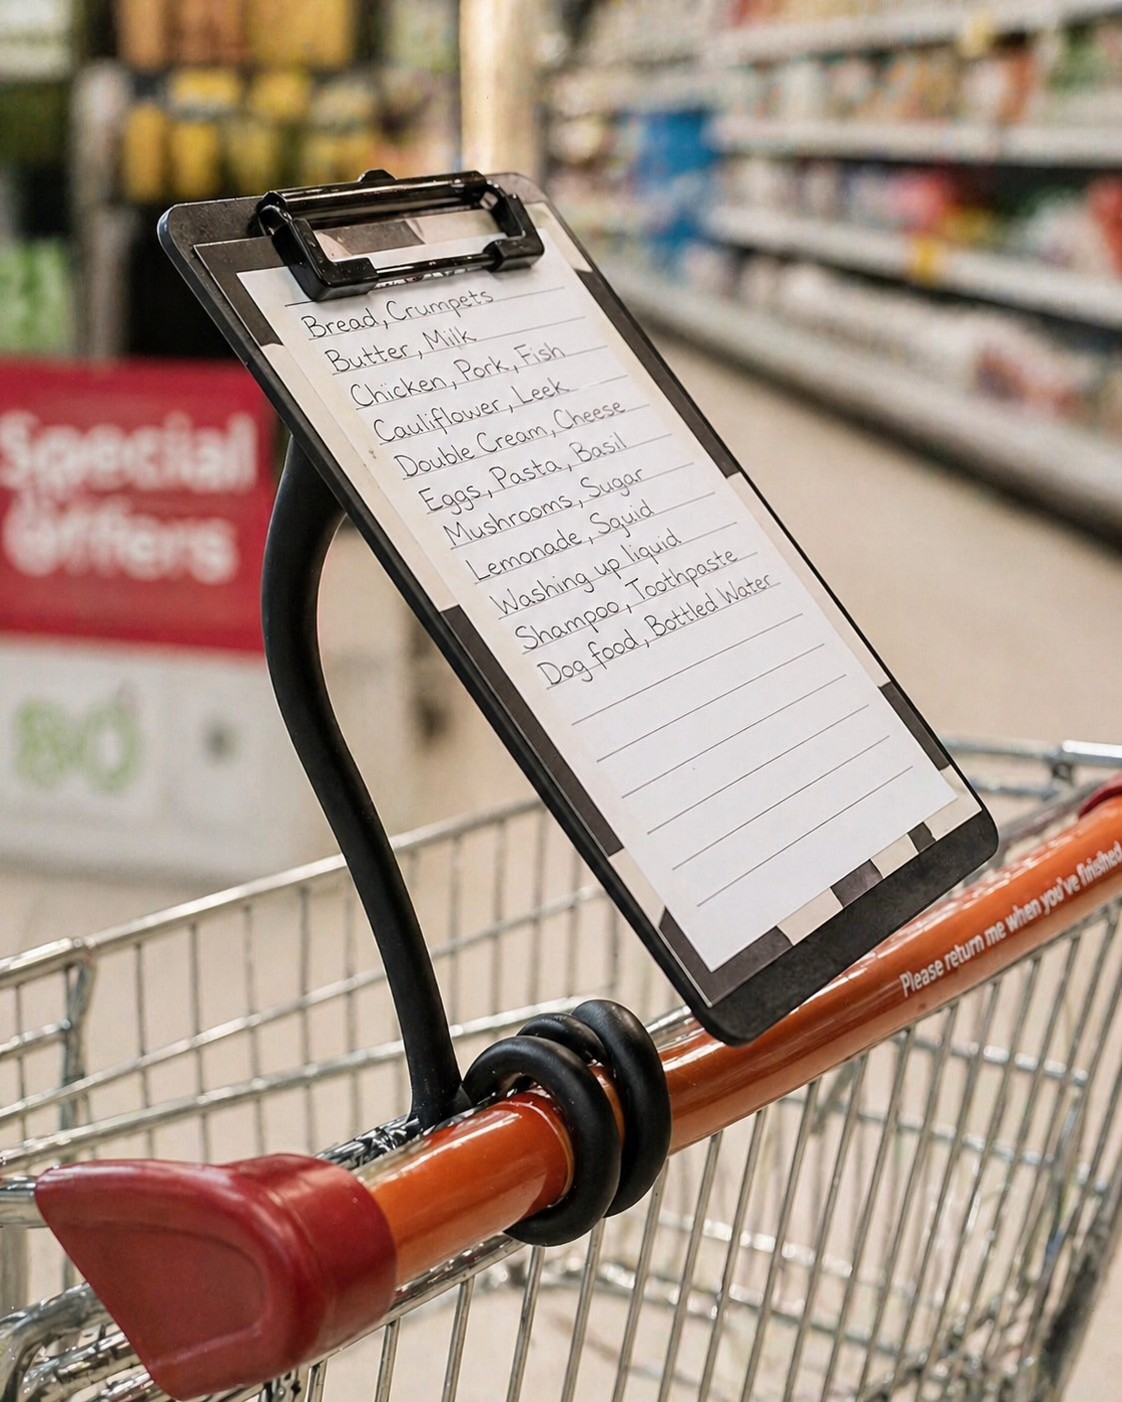 Bread, Crumpets
Butter, Milk
Chicken, Pork, Fish
Cauliflower, Leek
Double Cream, Cheese
Eggs, Pasta, Basil
Mushrooms, Sugar
Lemonade, Squid
Washing up liquid
Shampoo, Toothpaste
Dog food, Bottled Water
Special
Offers
80
Please return me when you've finished